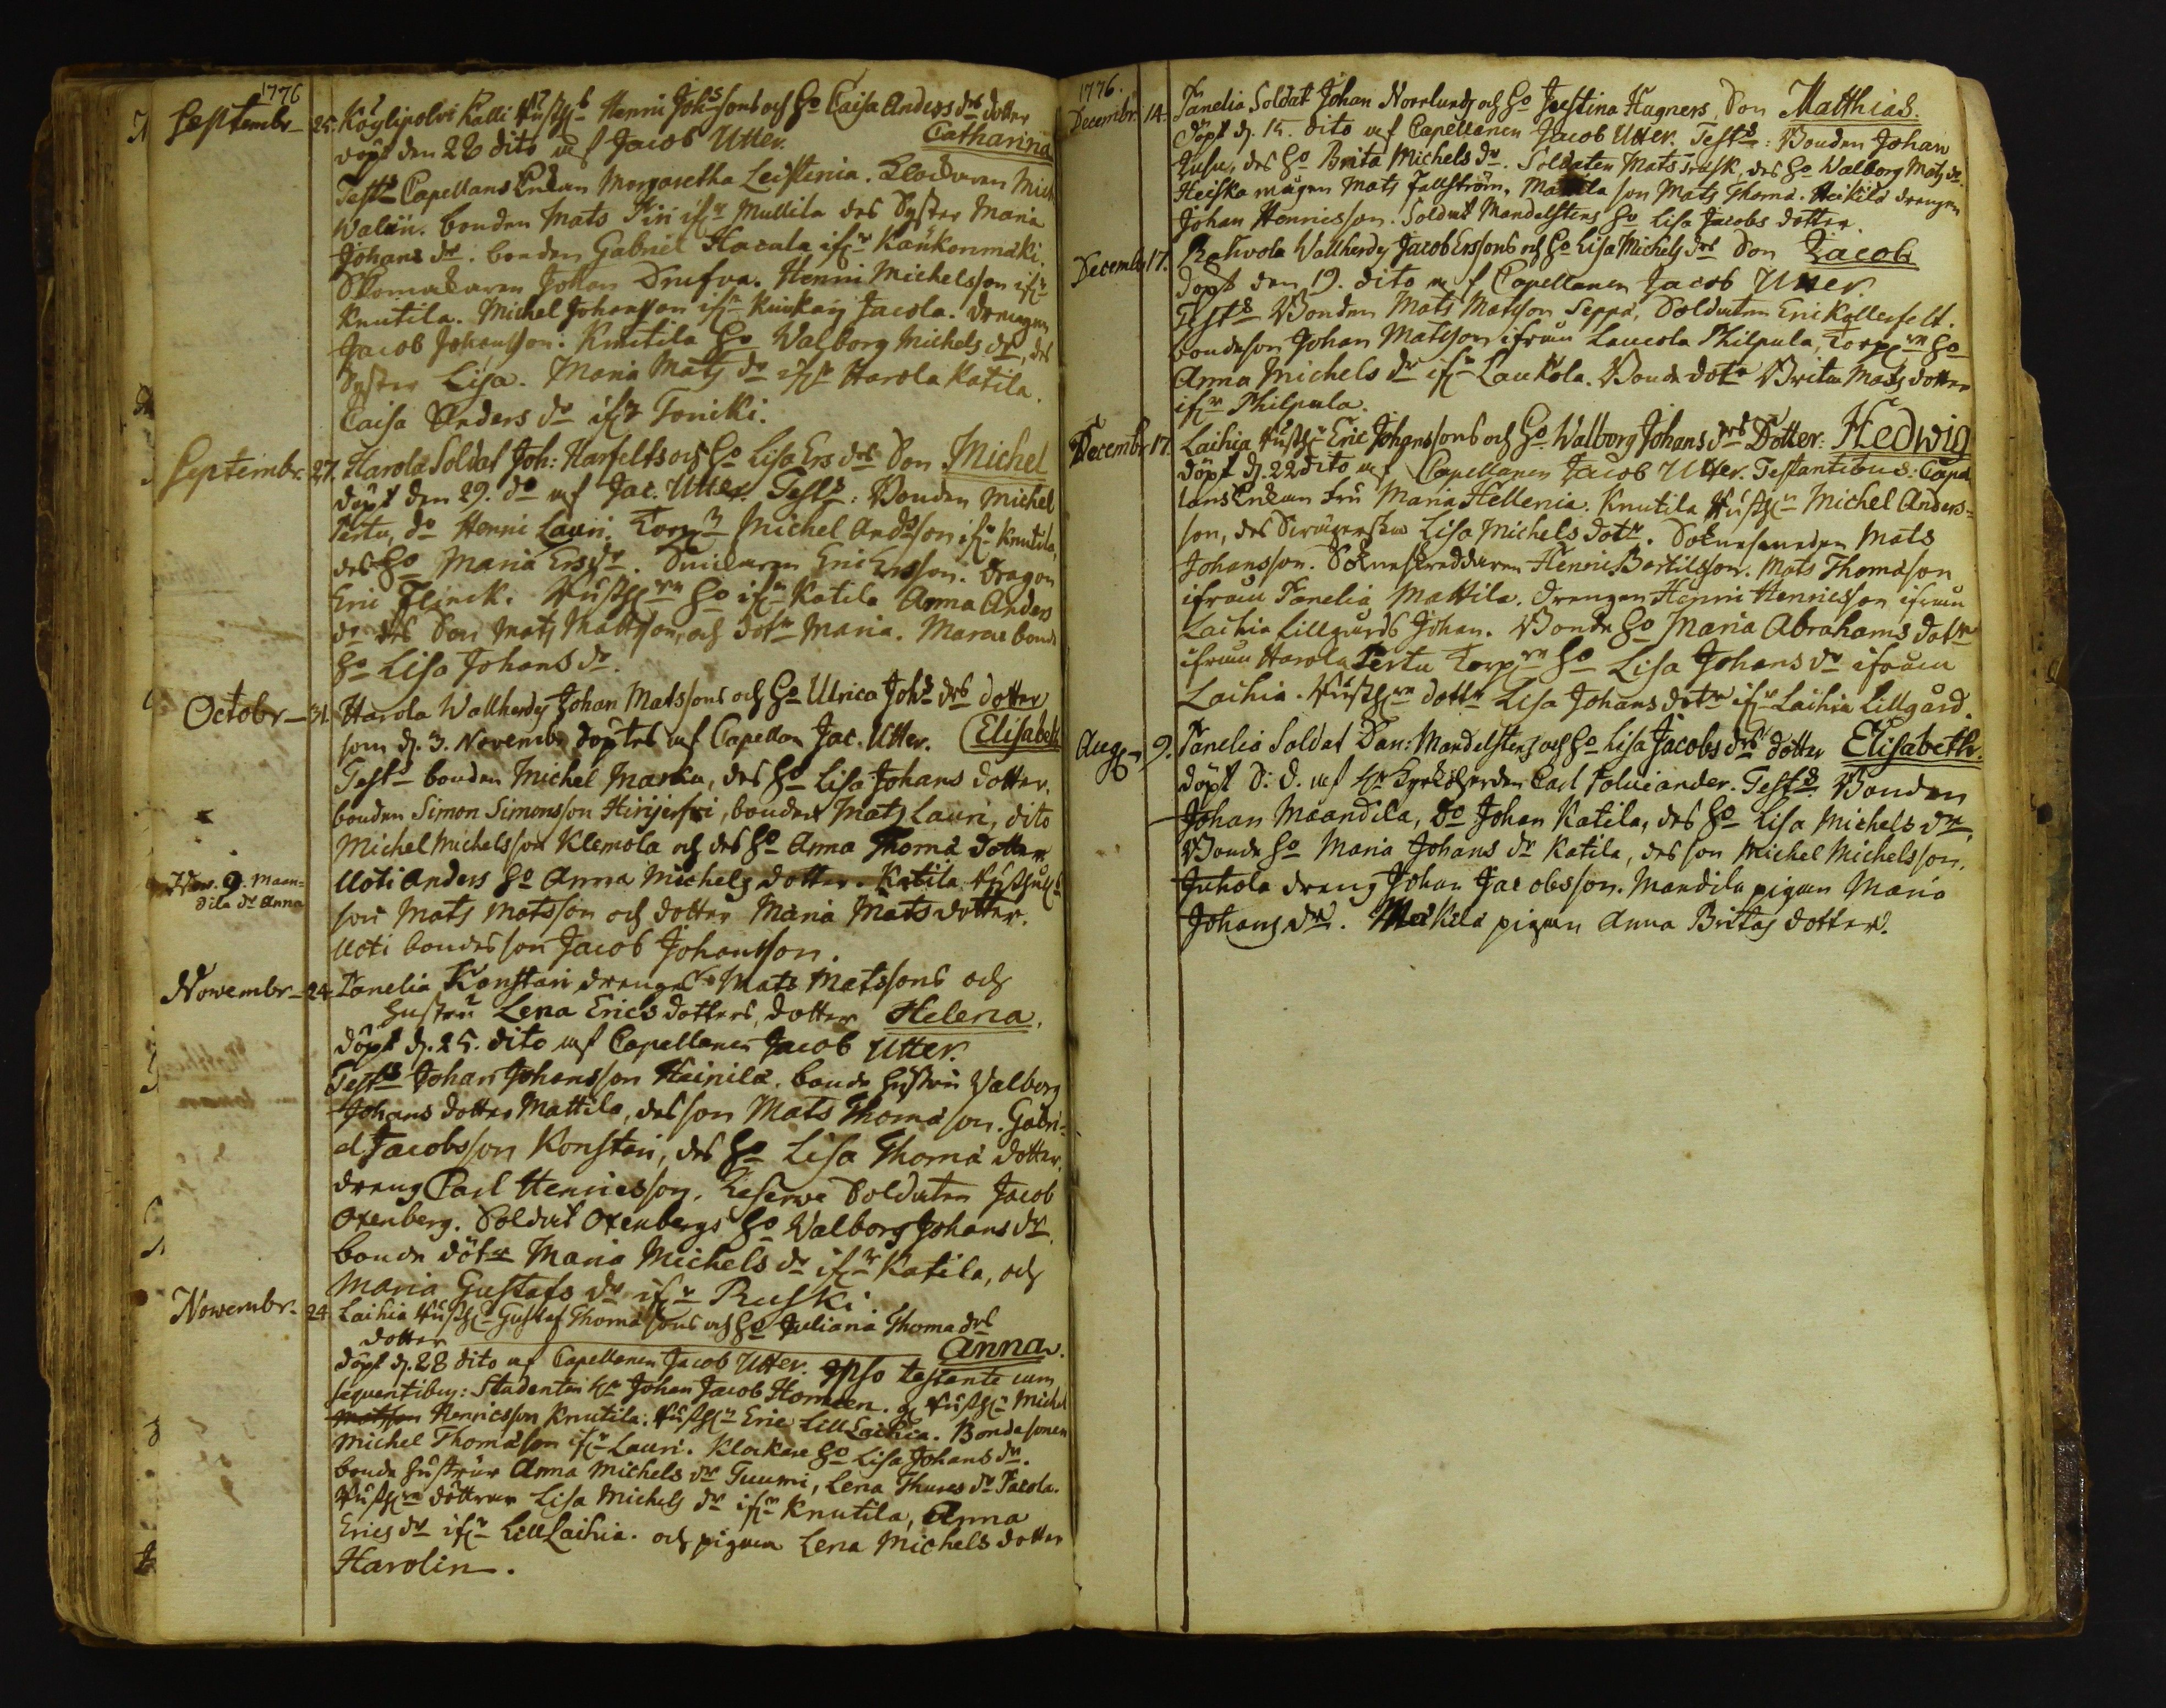 1776
Septembr 25. Köylipolvi Kalli Rusth. Henric Johssons och Ho Caisa Anders drs dotter
döpt den 28 dito af Jacob Utter. Catharina
Testes Capellans Enkan Margaretha Leistenia. Klockaren Mich
Walein. bonden Mats Piri ifrn Mullila des Syster Maria
Johans dr. bonden Gabriel Hacala ifrn Kaukonmäki.
Skomakaren Johan Drufva. Henric Michelsson ifrn
Knutila. Michel Johansson ifrn Jacola. drengen
Jacob Johansson. Knutila Ho Walborg Michels dr, des
Syster Lisa. Maria Mats dr ifrn Harola Katila.
Caisa Anders dr ifrn Toniki.
Septembr. 27. Harola Soldat Joh: Harfelts och Ho Lisa Ers drs Son Michel
döpt den 29. do af Jac. Utter. Tests: Bonden Michel
Pertu, do Henric Lauri. Torp Michel Andsson ifrn Knutila,
des Ho Maria Ersdr. Eric Ersson. Dragon
Eric Flinck. Rusth Ho ifrn Katila Anna Anders
dr des Son Mats Mattsson, och dotr Maria. bond
Ho Lisa Johans dr.
Octobr 31. Harola Wallherdes Johan Matssons och Ho Ulrica Johs drs dotter
som d. 3. Novembr döptes af Capellan Jac. Utter. Elisabeth
Tests bonden Michel Marku, des Ho Lisa Johans dotter.
bonden Simon Simonsson Hirijerfvi, bonden Mats Lauri, dito
Michel Michelsson Klemola och des Ho Anna Thomä dotter
Nov. 9. Maan=
dila dr Anna
Uoti Anders Ho Anna Michels dotter. Katila
son Mats Matsson och dotter Maria Mats dotter.
Uoti bondesson Jacob Johansson.
Novembr 24. Panelia Konstari drengs Mats Matssons och
hustru Lena Erics dotters, dotter Helena.
döpt d. 25. dito af Capellanen Jacob Utter.
Tests Johan Johansson Heinilä. bonde hustru Valborg
Johans dotter Mattila, des son Mats Thomäson. Gabri=
el Jacobsson Konstari, des Ho Lisa Thomä dotter,
dreng Carl Henricsson, Reserve Soldaten Jacob
Oxenberg. Soldat Oxenbergs Ho Walborg Johans dr.
bonde dotr Maria Michels dr ifrn Katila, och
Maria Gustafs dr ifrn Ruski.
Novembr. 24 Laihia Rusth Gustaf Thomäsons och Ho Juliana Thomä drs
dotter Anna.
döpt d. 28 dito af Capellanen Jacob Utter. ipso testante cum
sequentibus: Studenten Hr Johan Jacob Homeen. Rusth Michel
Matsson Henricsson Knutila. Rusth Eric Lill Laihia. Bondesonen
Michel Thomäson ifrn Lauri. Klockare Ho Lisa Johans dr.
bonde hustrur Anna Michels dr Tuumi, Lena Thures dr Jacola.
Rusth döttrar Lisa Michels dr ifrn Knutila, Anna
Erics dr ifrn Lill Laihia. och pigan Lena Michels dotter
Harolin.
1776.
Decembr. 14. Panelia Soldat Johan Norrlunds och Ho Justina Hagners, Son Matthias.
döpt d. 15. dito af Capellanen Jacob Utter. Tests: Bonden Johan
Jusu, des Ho Brita Michels dr. Soldaten Mats Trask, des Ho Walborg Mats dr.
Heiska mågen Mats Fallström, Mattila son Mats Thomä. Heikilä drengen
Johan Henricsson. Soldat Mandelstens Ho Lisa Jacobs dotter.
Decembr 17. Rahvola Wallherdes Jacob Erssons och Ho Lisa Michels drs Son Jacob
döpt den 19. dito af Capellanen Jacob Utter
Tests Bonden Mats Matsson Seppä, Soldaten Eric Kallerfelt.
bondeson Johan Matsson ifrån Laucola Philpula, Torp Ho
Anna Michels dr ifrn Laukola. Bonde dotr Brita Mats dotter
ifrn Philpula.
Decembr 17. Laihia Rusth Eric Johanssons och Ho Walborg Johans drs Dotter: Hedwig
döpt d. 22 dito af Capellanen Jacob Utter. Testantibus: Capel
lans Enkan Fru Maria Hellenia. Knutila Rusth Michel Anders=
son, des Svägerska Lisa Michels dotr. Mats
Johansson. Sokneskreddaren Henric Bertilsson. Mats Thomäson
ifrån Panelia Mattila. Drengen Henric Henricsson ifrån
Laihia Lillgårds Johan. Bonde Ho Maria Abrahams dotr
ifrån Harola Pertu Torp Ho Lisa Johans dr ifrån
Laihia. Rusth dottr Lisa Johans dotr ifrn Laihia Lillgård.
Aug 9. Panelia Soldat Dan: Mandelstens och Ho Lisa Jacobs drs dotter Elisabeth.
döpt S: D. af Hr Kyrkoherden Carl Polviander. Tests Bonden
Johan Maandila, Do Johan Katila, des Ho Lisa Michels dr.
Bonde Ho Maria Johans dr Katila, des son Michel Michelsson.
Juhola dreng Johan Jacobsson. Mandila pigan Maria
Johans dr. Meikilä pigan Anna Britas dotter.